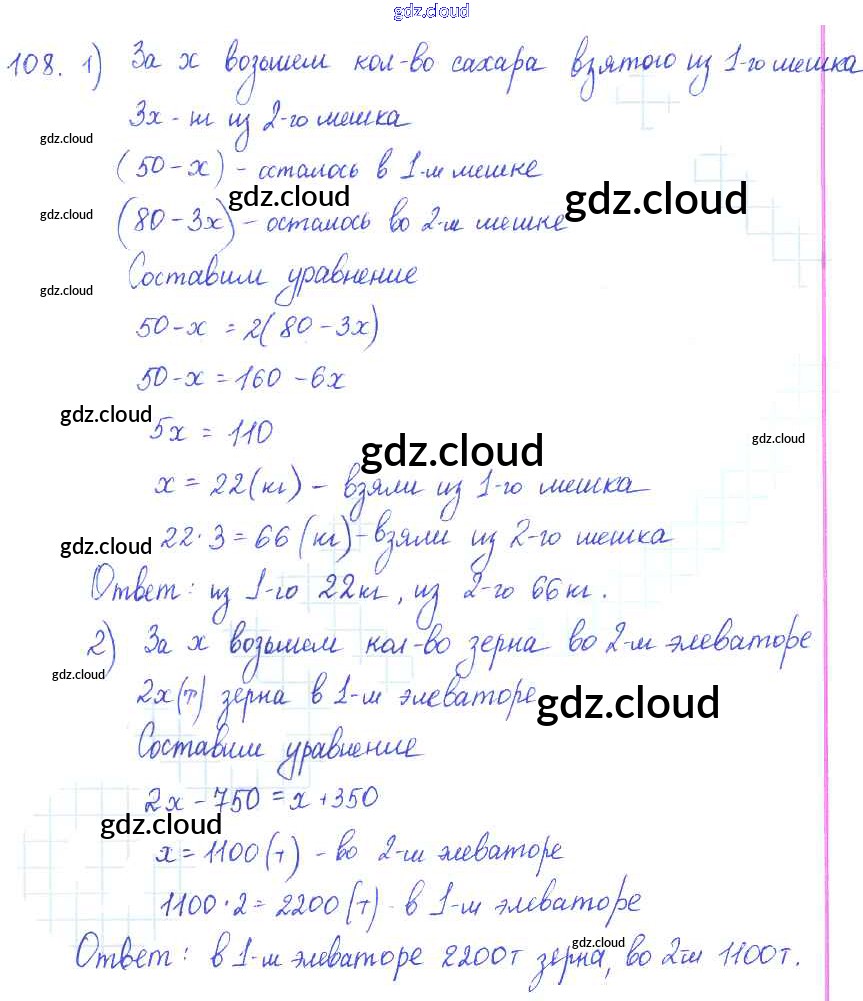 gdz.cloud
108. 1) За x возьмем кол-во сахара взятого из 1-го мешка
3x - ш из 2-го мешка
gdz.cloud
(50 - x) - осталось в 1-м мешке
gdz.cloud
gdz.cloud
gdz.cloud
(80 - 3x) - осталось во 2-м мешке
Составим уравнение
gdz.cloud
50 - x = 2(80 - 3x)
50 - x = 160 - 6x
gdz.cloud
5x = 110
gdz.cloud
gdz.cloud
x = 22 (кг) - взяли из 1-го мешка
22 · 3 = 66 (кг) - взяли из 2-го мешка
gdz.cloud
Ответ: из 1-го 22 кг, из 2-го 66 кг.
2) За x возьмем кол-во зерна во 2-м элеваторе
gdz.cloud
2x (т) зерна в 1-м элеваторе
gdz.cloud
Составим уравнение
2x - 750 = x + 350
gdz.cloud
x = 1100 (т) - во 2-м элеваторе
1100 · 2 = 2200 (т) - в 1-м элеваторе
gdz.cloud
Ответ: в 1-м элеваторе 2200т зерна, во 2-м 1100т.